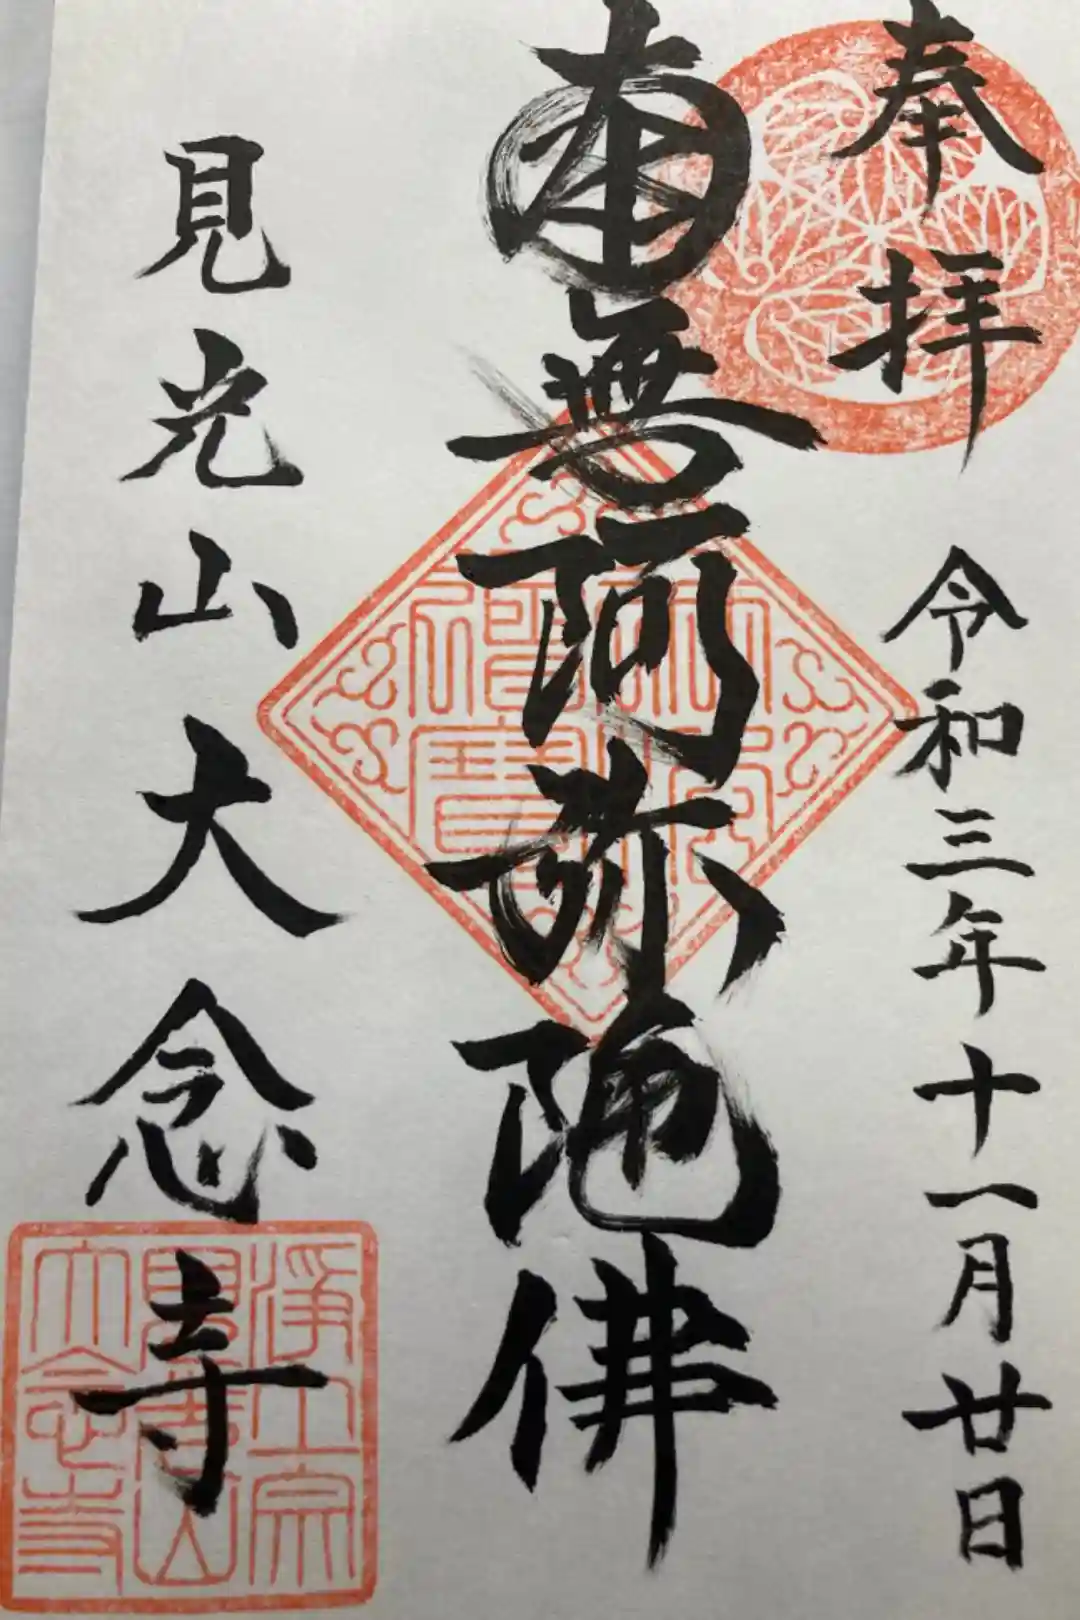 奉拝
令和三年十一月廿日
南無阿弥陀佛
見光山大念寺
佛法僧寳
浄土宗
見光山
大念寺